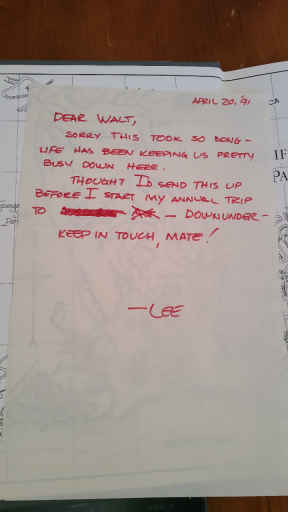 APRIL 20, '91
DEAR WALT,
SORRY THIS TOOK SO LONG -
LIFE HAS BEEN KEEPING US PRETTY
BUSY DOWN HERE.
THOUGHT I'D SEND THIS UP
BEFORE I START MY ANNUAL TRIP
TO — DOWNUNDER -
KEEP IN TOUCH, MATE!
— LEE